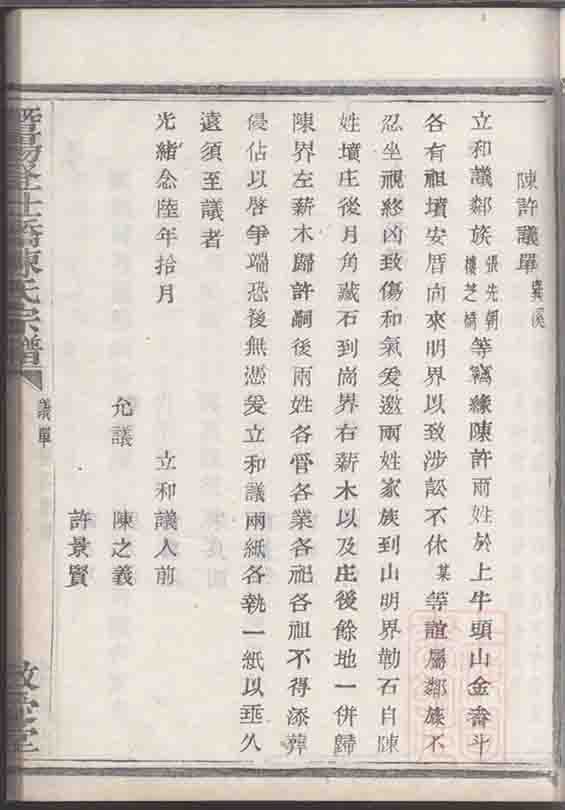 陳許議單 龔溪
立和議鄰族 張先朝 樓芝 等竊緣陳許兩姓於上牛頭山金畚斗
各有祖墳安厝向來明界以致涉訟不休 某 等誼屬鄰族不
忍坐視終凶致傷和氣爰邀兩姓家族到山明界勒石自陳
姓墳庄後月角藏石到崗界右薪木以及庄後餘地一併歸
陳界左薪木歸許嗣後兩姓各管各業各祀各祖不得添葬
侵佔以啓爭端恐後無憑爰立和議兩紙各執一紙以垂久
遠須至議者
光緒念陸年拾月 立和議人前
允議 陳之義
許景賢
暨陽 仕 陳氏宗譜
議單